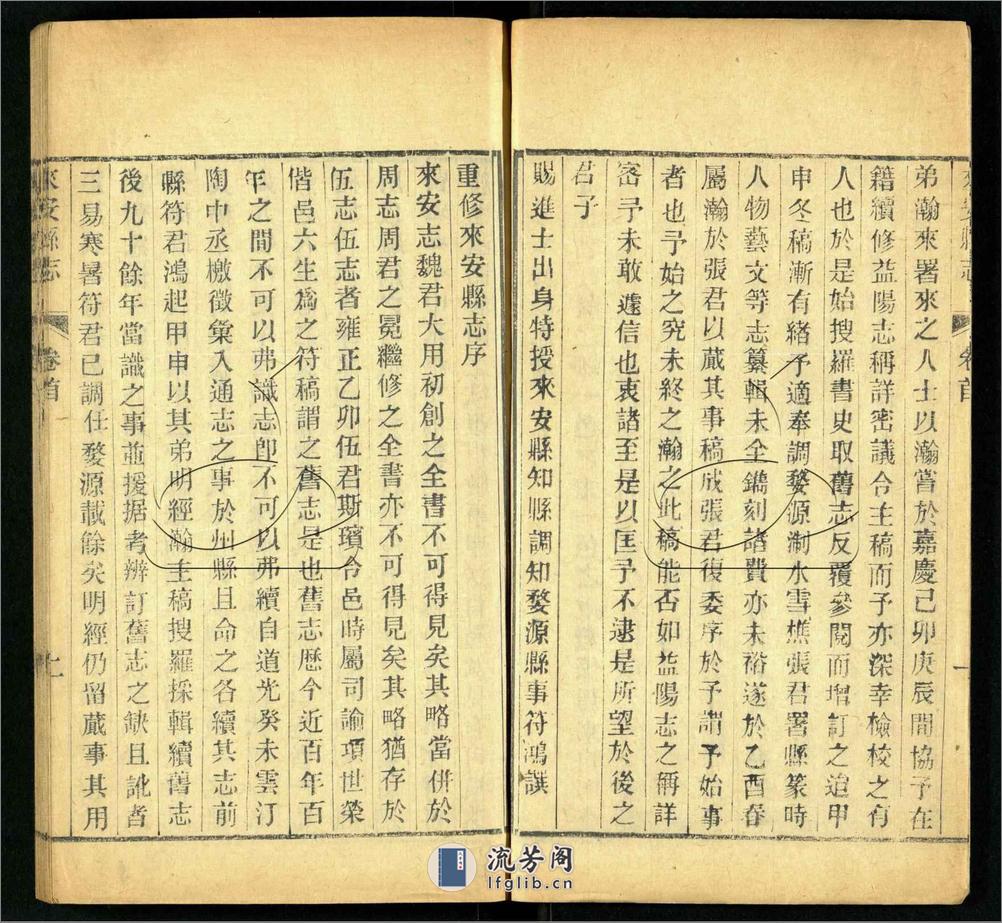 弟瀚來署來之人士以瀚嘗於嘉慶己卯庚辰間協予在
籍續修益陽志稱詳密議令主稿而予亦深幸檢校之有
人也於是始搜羅書史取舊志反覆參閱而增訂之迨甲
申冬稿漸有緒予適奉調婺源淛水雪樵張君署縣篆時
人物藝文等志纂輯未全鐫刻諸費亦未裕遂於乙酉春
屬瀚於張君以蕆其事稿成張君復委序於予謂予始事
者也予始之究未終之瀚之此稿能否如益陽志之稱詳
密予未敢遽信也衷諸至是以匡予不逮是所望於後之
君子
賜進士出身特授來安縣知縣調知婺源縣事符鴻譔
重修來安縣志序
來安志魏君大用初創之全書不可得見矣其略當併於
周志周君之冕繼修之全書亦不可得見矣其略猶存於
伍志伍志者雍正乙卯伍君斯璸令邑時屬司諭項世榮
偕邑六生為之符稿謂之舊志是也舊志歷今近百年百
年之間不可以弗識志卽不可以弗續自道光癸未雲汀
陶中丞檄徵彙入通志之事於州縣且命之各續其志前
縣符君鴻起甲申以其弟明經瀚主稿搜羅採輯續舊志
後九十餘年當識之事並援据考辨訂舊志之缺且訛者
三易寒暑符君已調任婺源載餘矣明經仍留蕆事其用
來安縣志
卷首
七
流芳阁
lfglib.cn